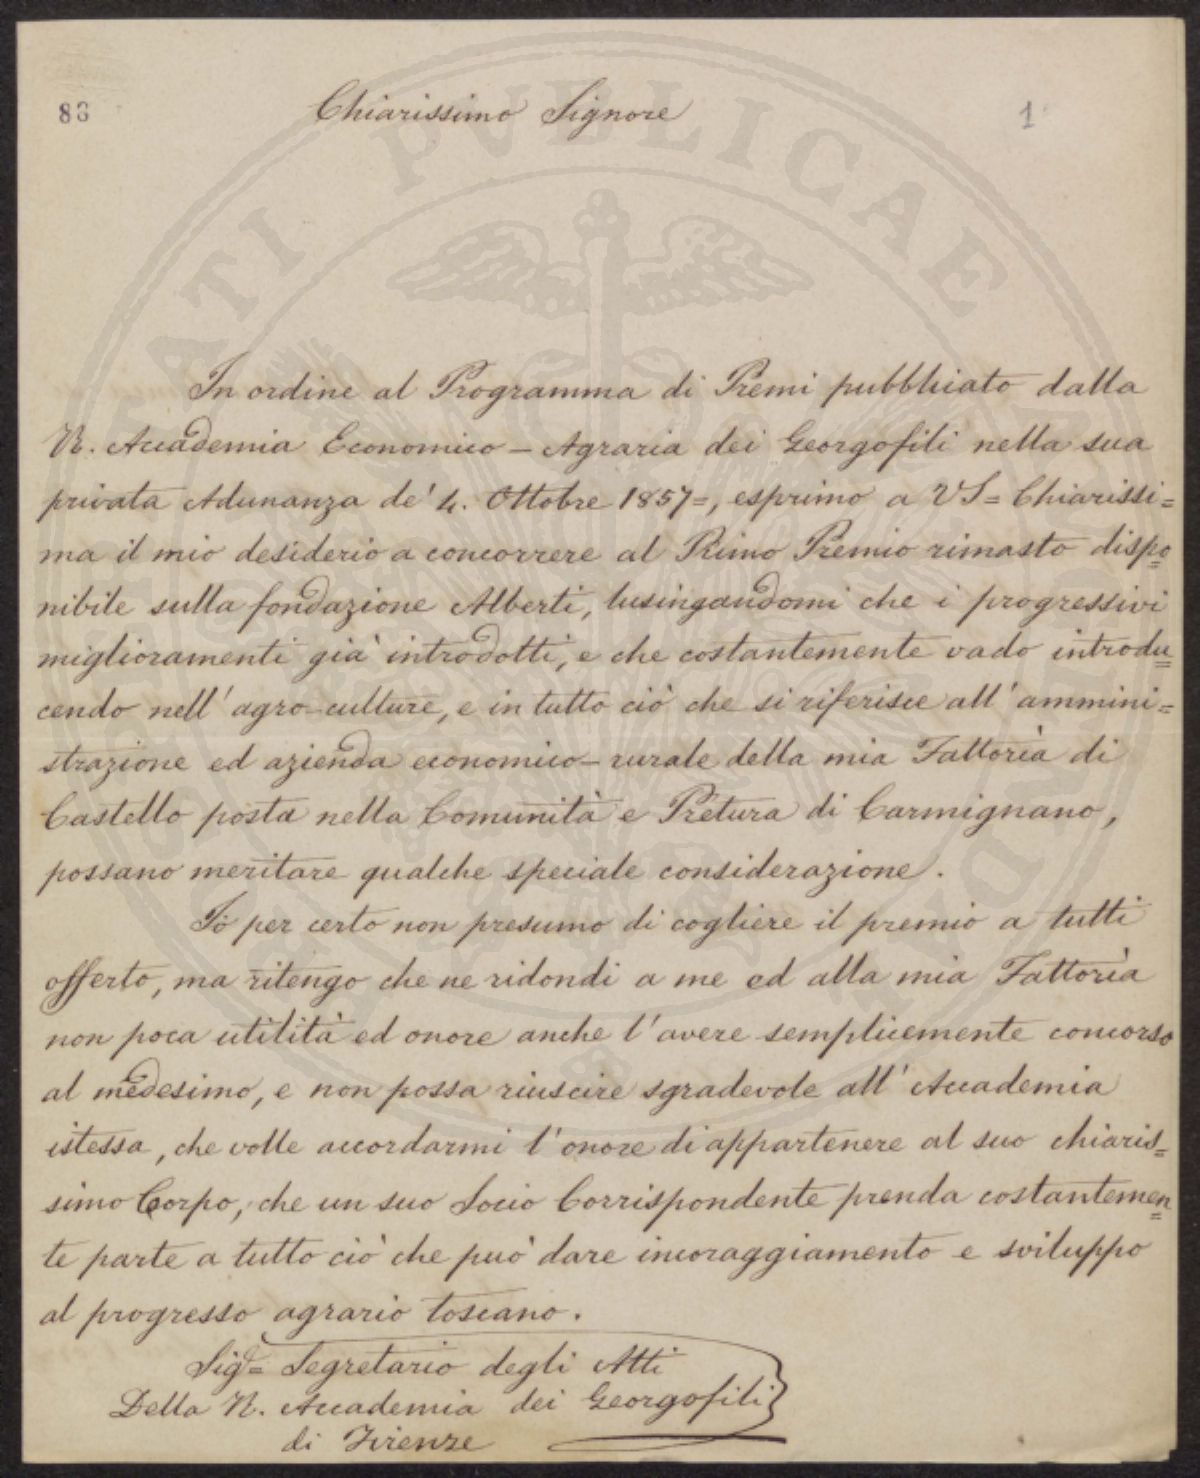 83
Chiarissimo Signore
1
In ordine al Programma di Premi pubblicato dalla
R. Accademia Economico - Agraria dei Georgofili nella sua
privata Adunanza de' 4. Ottobre 1857=, esprimo a VS= Chiarissi=
ma il mio desiderio a concorrere al Primo Premio rimasto dispo
nibile sulla fondazione Alberti, lusingandomi che i progressivi
miglioramenti già introdotti, e che costantemente vado introdu=
cendo nell' agro-culture, e in tutto ciò che si riferisce all' ammini=
strazione ed azienda economico-rurale della mia Fattoria di
Castello posta nella Comunità e Pretura di Carmignano,
possano meritare qualche speciale considerazione.
Io per certo non presumo di cogliere il premio a tutti
offerto, ma ritengo che ne ridondi a me ed alla mia Fattoria
non poca utilità ed onore anche l'avere semplicemente concorso
al medesimo, e non possa riuscire sgradevole all' Accademia
istessa, che volle accordarmi l'onore di appartenere al suo chiaris=
simo Corpo, che un suo Socio Corrispondente prenda costantemen=
te parte a tutto ciò che può dare incoraggiamento e sviluppo
al progresso agrario toscano.
Sigr= Segretario degli Atti
Della R. Accademia dei Georgofili
di Firenze